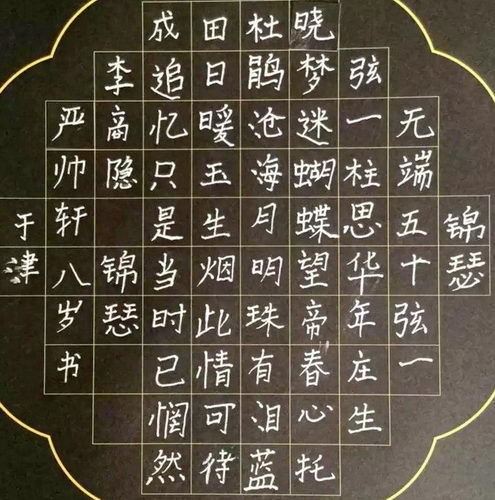 锦瑟
无端五十弦一
弦一柱思华年庄生
晓梦迷蝴蝶望帝春心托
杜鹃沧海月明珠有泪蓝
田日暖玉生烟此情可待
成追忆只是当时已惘然
李商隐 锦瑟
严帅轩八岁书
于津